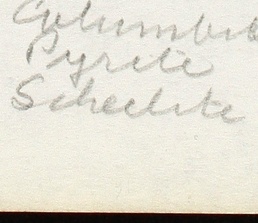 Columbit
Pyrite
Scheelite